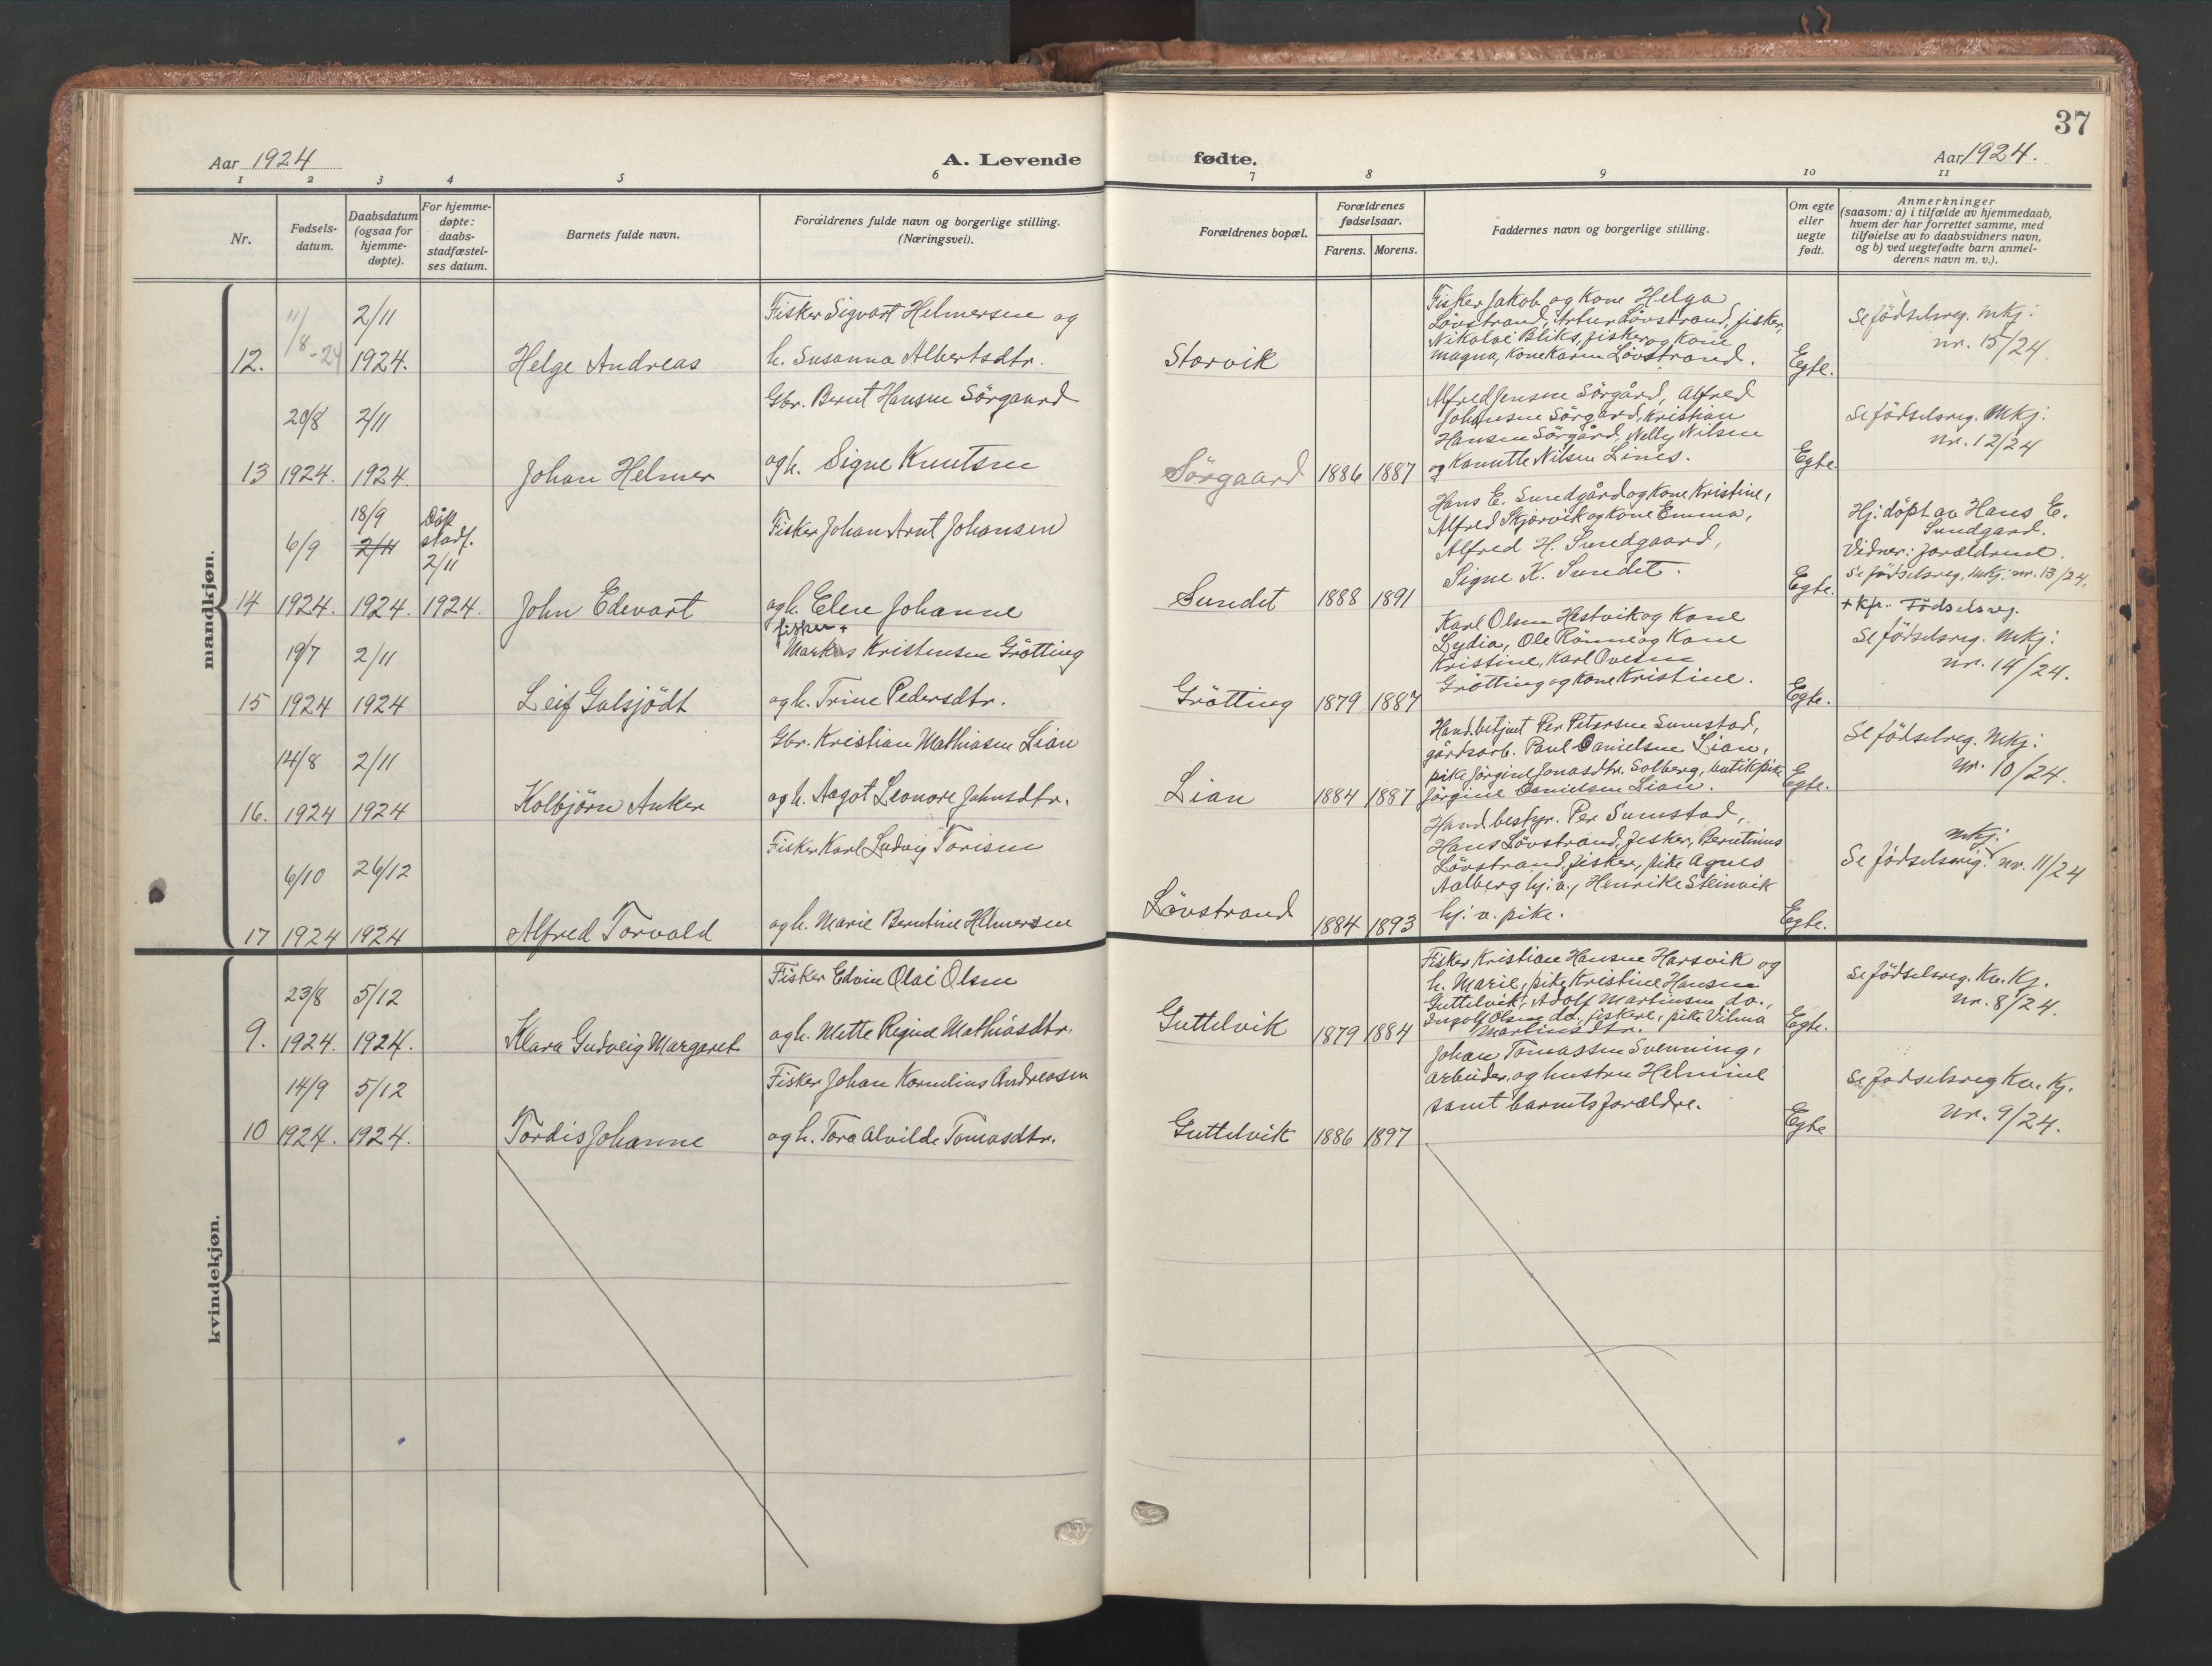 37
Aar 1924
A. Levende
fødte.
Aar 1924.
1 2 3 4 5 6 7 8 9 10 11
Nr.
Fødsels-
datum.
Daabsdatum
(ogsaa for
hjemme-
døpte).
For hjemme-
døpte:
daabs-
stadfæstel-
ses datum.
Barnets fulde navn.
Forældrenes fulde navn og borgerlige stilling.
(Næringsvei).
Forældrenes bopæl.
Forældrenes
fødselsaar.
Farens. Morens.
Faddernes navn og borgerlige stilling.
Om egte
eller
uegte
født.
Anmerkninger
(saasom: a) i tilfælde av hjemmedaab,
hvem der har forrettet samme, med
tilføielse av to daabsvidners navn,
og b) ved uegtefødte barn anmel-
derens navn m. v.).
mandkjøn.
12.
11/8-24
2/11
1924.
Helge Andreas
Fisker Sigvart Helmersen og
h. Susanna Albertsdtr.
Storvik
Fisker Jakob og kone Helga
Lövstrand, Artur Lövstrand, fisker,
Nikolai Bliks, fisker og kone
Magna, kone Karen Lövstrand.
Egte.
Se födselsreg. Mkj:
nr. 15/24.
13
20/8
1924.
2/11
1924.
Johan Helmer
Gbr. Bernt Hansen Sörgaard
og h. Signe Knutsen
Sörgaard
1886 1887
Alfred Jensen Sörgård, Alfred
Johansen Sörgård, Kristian
Hansen Sörgård, Nelly Nilsen
og Kanutte Nilsen Lines.
Egte.
Se födselsreg. Mkj:
nr. 12/24
14
6/9
1924.
18/9
2/11
1924.
Döp
stadf.
2/11
1924.
John Edevart
Fisker Johan Arnt Johansen
og h. Elen Johanne
Sundet
1888 1891
Hans E. Sundgård og kone Kristine,
Alfred Skjærvik og kone Emma,
Alfred H. Sundgaard,
Signe K. Sundet.
Egte.
Hj: döpt av Hans E.
Sundgard.
Vidner: forældrene.
Se födselsreg. mkj. nr. 13/24.
15
19/7
1924
2/11
1924
Leif Galsjödt
fisker +
Markus Kristensen Grötting
og h. Trine Pedersdtr.
Grötting
1879 1887
Karl Olsen Hestvik og Kone
Lydia, Ole Rönne og Kone
Kristine, Karl Ovesen
Grötting og kone Kristine.
Egte.
+ Kfr. Födselsreg.
Se födselsreg. Mkj:
nr. 14/24.
16.
14/8
1924
2/11
1924
Kolbjörn Anker
Gbr. Kristian Mathiasen Lian
og h. Aagot Leonore Johnsdtr.
Lian
1884 1887
Handbetjent Per Petersen Sumstad,
gårdsarb. Paul Danielsen Lian,
pike Jörgine Jonasdtr. Solberg, butikpike
Jörgine Danielsen Lian.
Egte.
Se födselsreg. Mkj:
nr. 10/24.
17
6/10
1924
26/12
1924
Alfred Torvald
Fisker Karl Ludvig Torisen
og h. Marie Berntine Helmersen
Lövstrand
1884 1893
Handbestyr. Per Sumstad,
Hans Lövstrand, fisker, Berntinus
Lövstrand, fisker, pike Agnes
Aalberg hj: v., Henrike Steinvik
hj: v. pike.
Egte.
mkj:
Se födselsreg. nr. 11/24
kvindekjøn.
9.
23/8
1924.
5/12
1924.
Klara Gudveig Margaret
Fisker Edvin Olai Olsen
og h. Mette Regine Mathiasdtr.
Guttelvik
1879 1884
Fisker Kristian Hansen Harsvik og
h. Marie, pike Kristine Hansen
Guttelvik, Adolf Martinsen do.,
Ingolf Olsen do. fiskere, pike Vilma
Martinsdtr.
Egte.
Se födselsreg. Kv. Kj.
nr. 8/24.
10
14/9
1924.
5/12
1924.
Tordis Johanne
Fisker Johan Kornelius Andreasen
og h. Tora Alvilde Tomasdtr.
Guttelvik
1886 1897
Johan Tomassen Svenning,
arbeider, og hustru Helmine
samt barnets forældre.
Egte
Se fødselsreg Kv. Kj.
nr. 9/24.